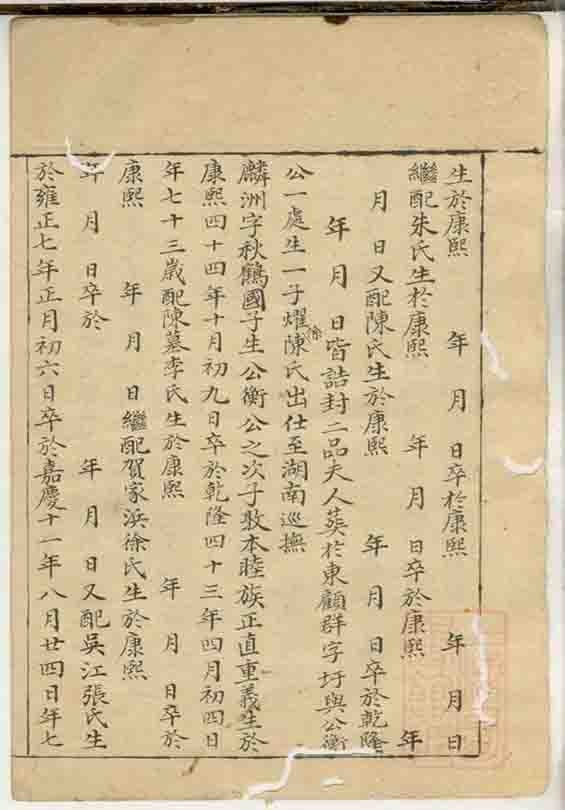 生於康熙　年　月　日卒於康熙　年　月　日
繼配朱氏生於康熙　年　月　日卒於康熙　年
月　日又配陳氏生於康熙　年　月　日卒於乾隆
年　月　日皆誥封二品夫人葬於東顧群字圩與公衡
公一處生一子燿陳氏出仕至湖南巡撫
麟洲字秋鶴國子生公衡公之次子敦本睦族正直重義生於
康熙四十四年十月初九日卒於乾隆四十三年四月初四日
年七十三歲配陳墓李氏生於康熙　年　月　日卒於
康熙　年　月　日繼配賀家浜徐氏生於康熙
年　月　日卒於　年　月　日又配吳江張氏生
於雍正七年正月初六日卒於嘉慶十一年八月廿四日年七